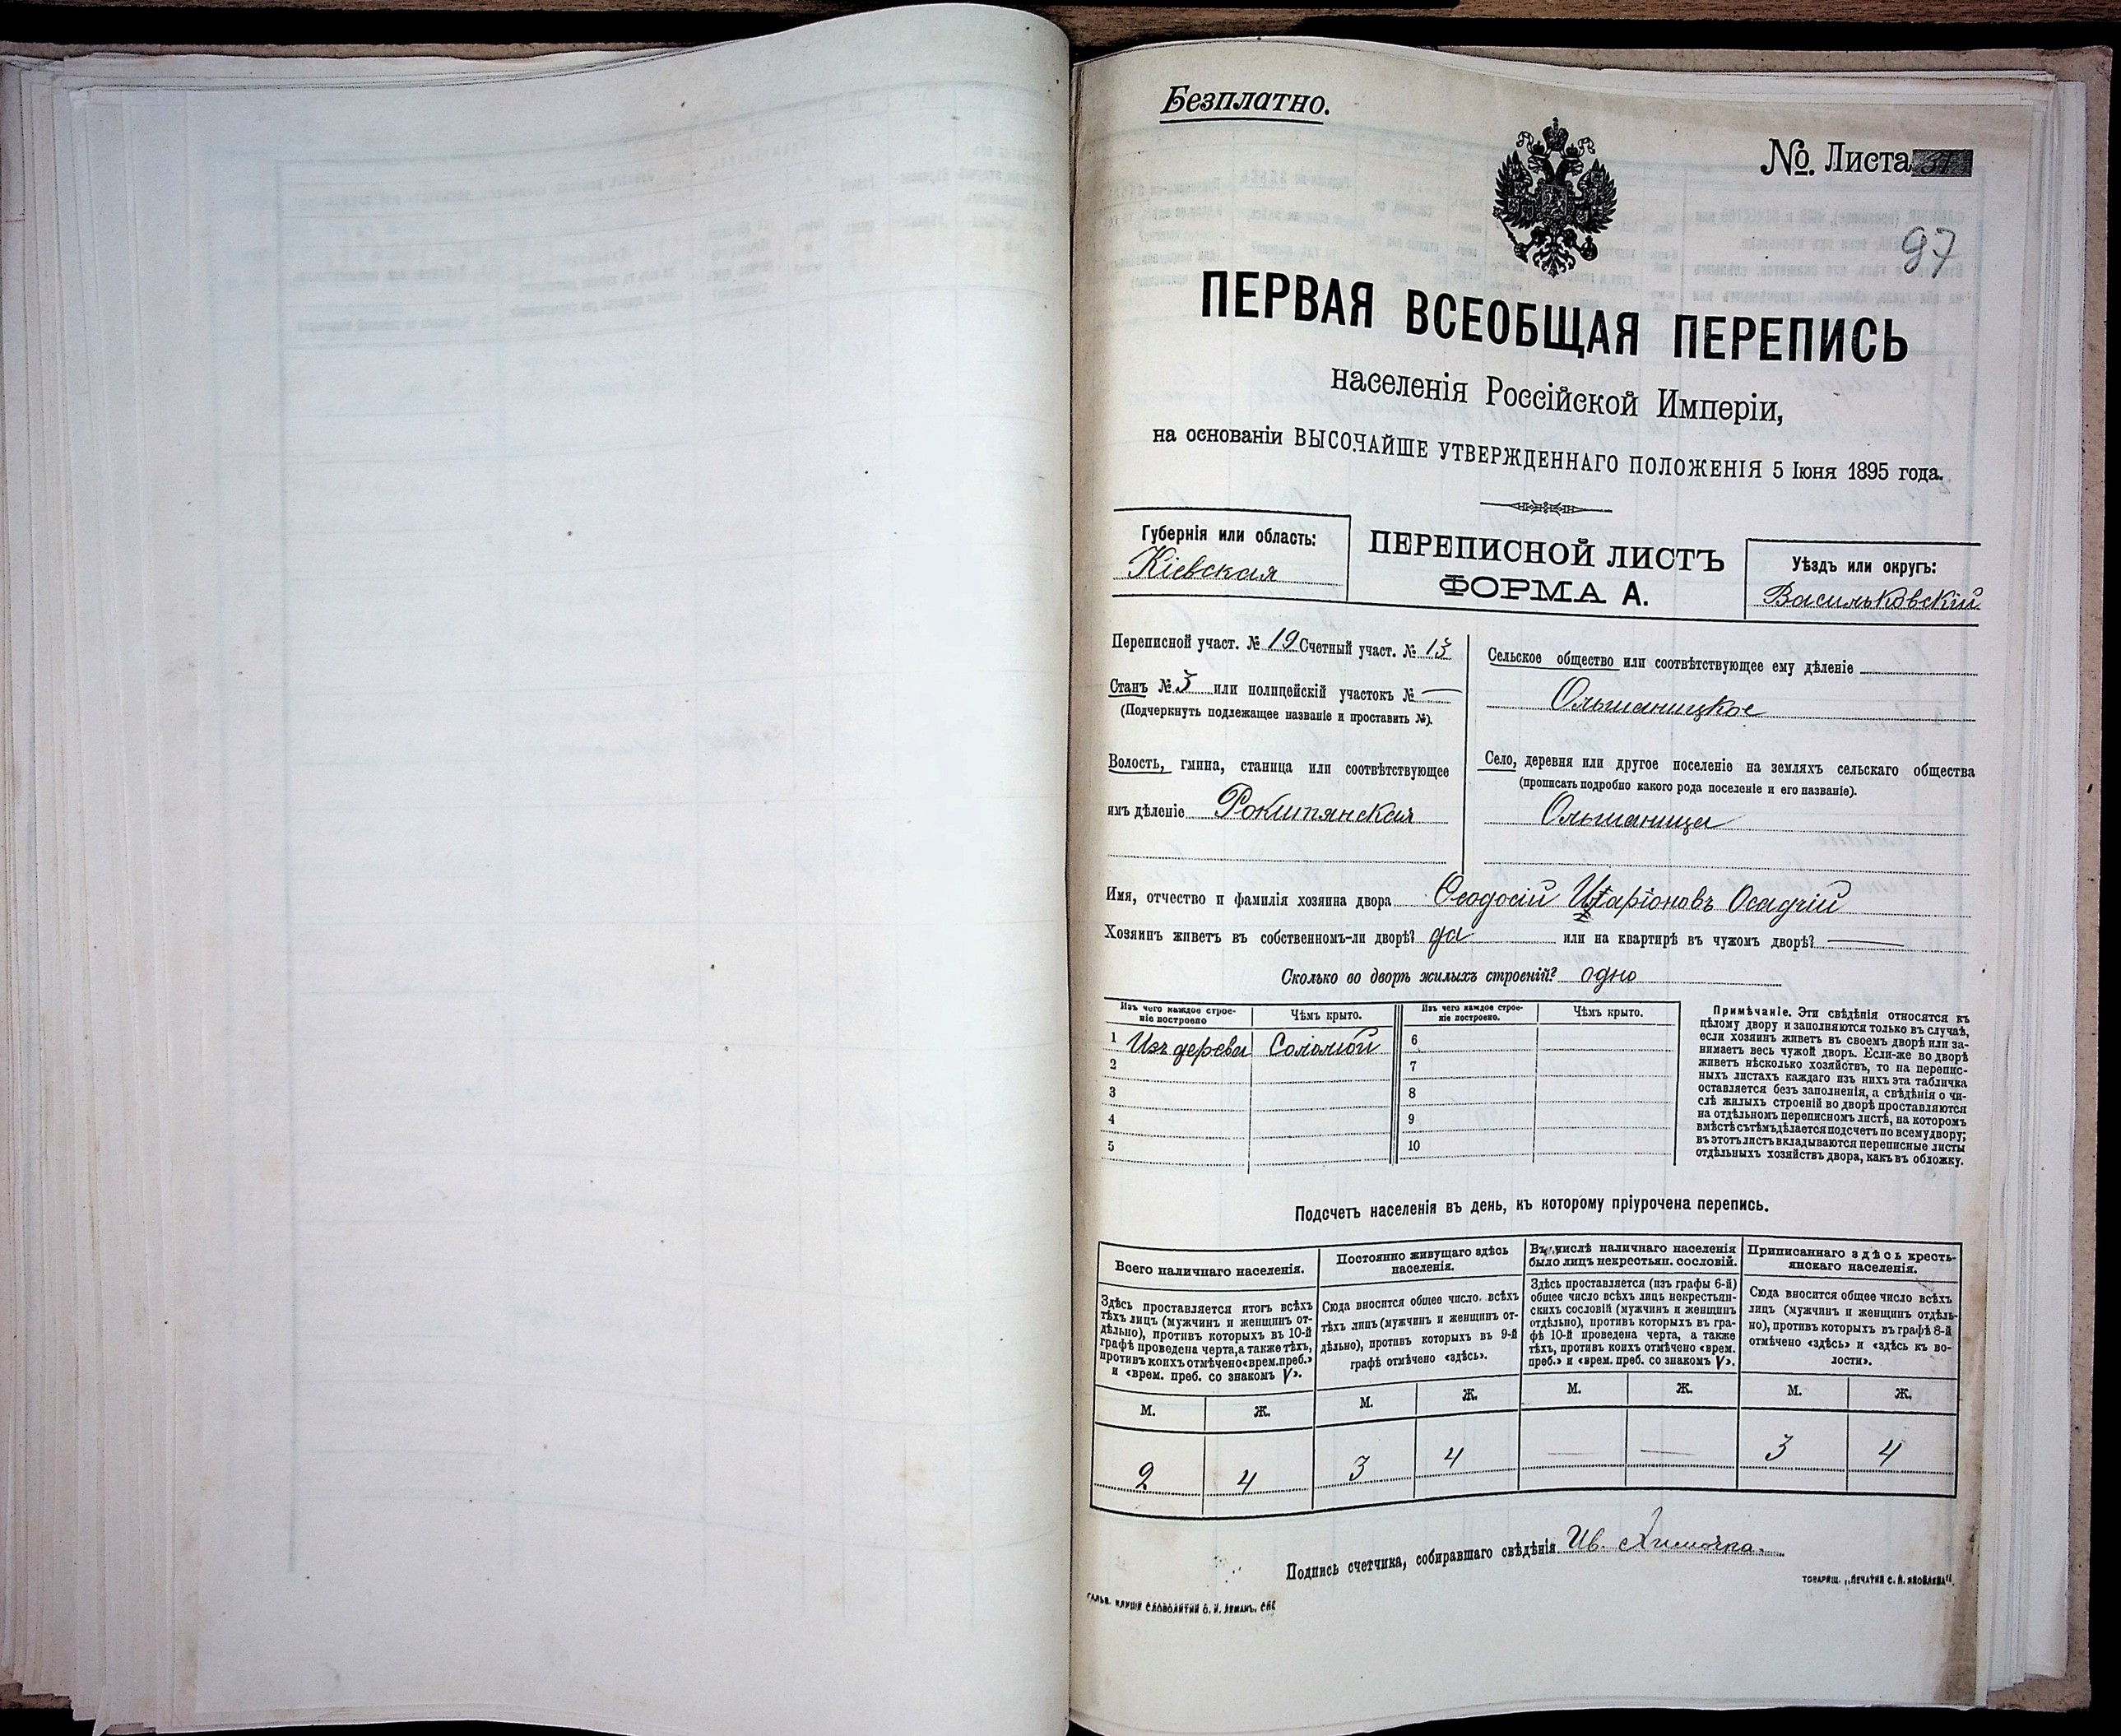 Безплатно.
№ Листа 31
97
ПЕРВАЯ ВСЕОБЩАЯ ПЕРЕПИСЬ
населенія Россійской Имперіи,
на основаніи ВЫСОЧАЙШЕ УТВЕРЖДЕННАГО ПОЛОЖЕНІЯ 5 Іюня 1895 года.
Губернія или область:
Кіевская
ПЕРЕПИСНОЙ ЛИСТЪ
ФОРМА А.
Уѣздъ или округъ:
Васильковскій
Переписной участ. № 19 Счетный участ. № 13
Станъ № 3 или полицейскій участокъ № —
(Подчеркнуть подлежащее названіе и проставить №).
Волость, гмина, станица или соотвѣтствующее
имъ дѣленіе Рокитянская
Сельское общество или соотвѣтствующее ему дѣленіе
Ольшаницкое
Село, деревня или другое поселеніе на земляхъ сельскаго общества
(прописать подробно какого рода поселеніе и его названіе).
Ольшаница
Имя, отчество и фамилія хозяина двора Феодосій Иларіоновъ Осадчій
Хозяинъ живетъ въ собственномъ-ли дворѣ? да или на квартирѣ въ чужомъ дворѣ? —
Сколько во дворѣ жилыхъ строеній? одно
Изъ чего каждое строе-
ніе построено
Чѣмъ крыто.
Изъ чего каждое строе-
ніе построено.
Чѣмъ крыто.
1 Изъ дерева Соломой 6
2 7
3 8
4 9
5 10
Примѣчаніе. Эти свѣдѣнія относятся къ
цѣлому двору и заполняются только въ случаѣ,
если хозяинъ живетъ въ своемъ дворѣ или за-
нимаетъ весь чужой дворъ. Если-же во дворѣ
живетъ нѣсколько хозяйствъ, то на перепис-
ныхъ листахъ каждаго изъ нихъ эта табличка
оставляется безъ заполненія, а свѣдѣнія о чи-
слѣ жилыхъ строеній во дворѣ проставляются
на отдѣльномъ переписномъ листѣ, на которомъ
вмѣстѣ съ тѣмъ дѣлается подсчетъ по всему двору;
въ этотъ листъ вкладываются переписные листы
отдѣльныхъ хозяйствъ двора, какъ въ обложку.
Подсчетъ населенія въ день, къ которому пріурочена перепись.
Всего наличнаго населенія.
Здѣсь проставляется итогъ всѣхъ
тѣхъ лицъ (мужчинъ и женщинъ от-
дѣльно), противъ которыхъ въ 10-й
графѣ проведена черта, а также тѣхъ,
противъ коихъ отмѣчено «врем. преб.»
и «врем. преб. со знакомъ V».
Постоянно живущаго здѣсь
населенія.
Сюда вносится общее число всѣхъ
тѣхъ лицъ (мужчинъ и женщинъ от-
дѣльно), противъ которыхъ въ 9-й
графѣ отмѣчено «здѣсь».
Въ числѣ наличнаго населенія
было лицъ некрестьян. сословій.
Здѣсь проставляется (изъ графы 6-й)
общее число всѣхъ лицъ некрестьян-
скихъ сословій (мужчинъ и женщинъ
отдѣльно), противъ которыхъ въ гра-
фѣ 10-й проведена черта, а также
тѣхъ, противъ коихъ отмѣчено «врем.
преб.» и «врем. преб. со знакомъ V».
Приписаннаго здѣсь кресть-
янскаго населенія.
Сюда вносится общее число всѣхъ
лицъ (мужчинъ и женщинъ отдѣль-
но), противъ которыхъ въ графѣ 8-й
отмѣчено «здѣсь» и «здѣсь къ во-
лости».
М. Ж. М. Ж. М. Ж. М. Ж.
2 4 3 4 — — 3 4
Подпись счетчика, собиравшаго свѣдѣнія Ив.
ГАЛЬВ. КЛИШЕ СЛОВОЛИТНИ О. И. ЛЕМАНЪ, СПБ
ТОВАРИЩ. „ПЕЧАТНЯ С. П. ЯКОВЛЕВА“.